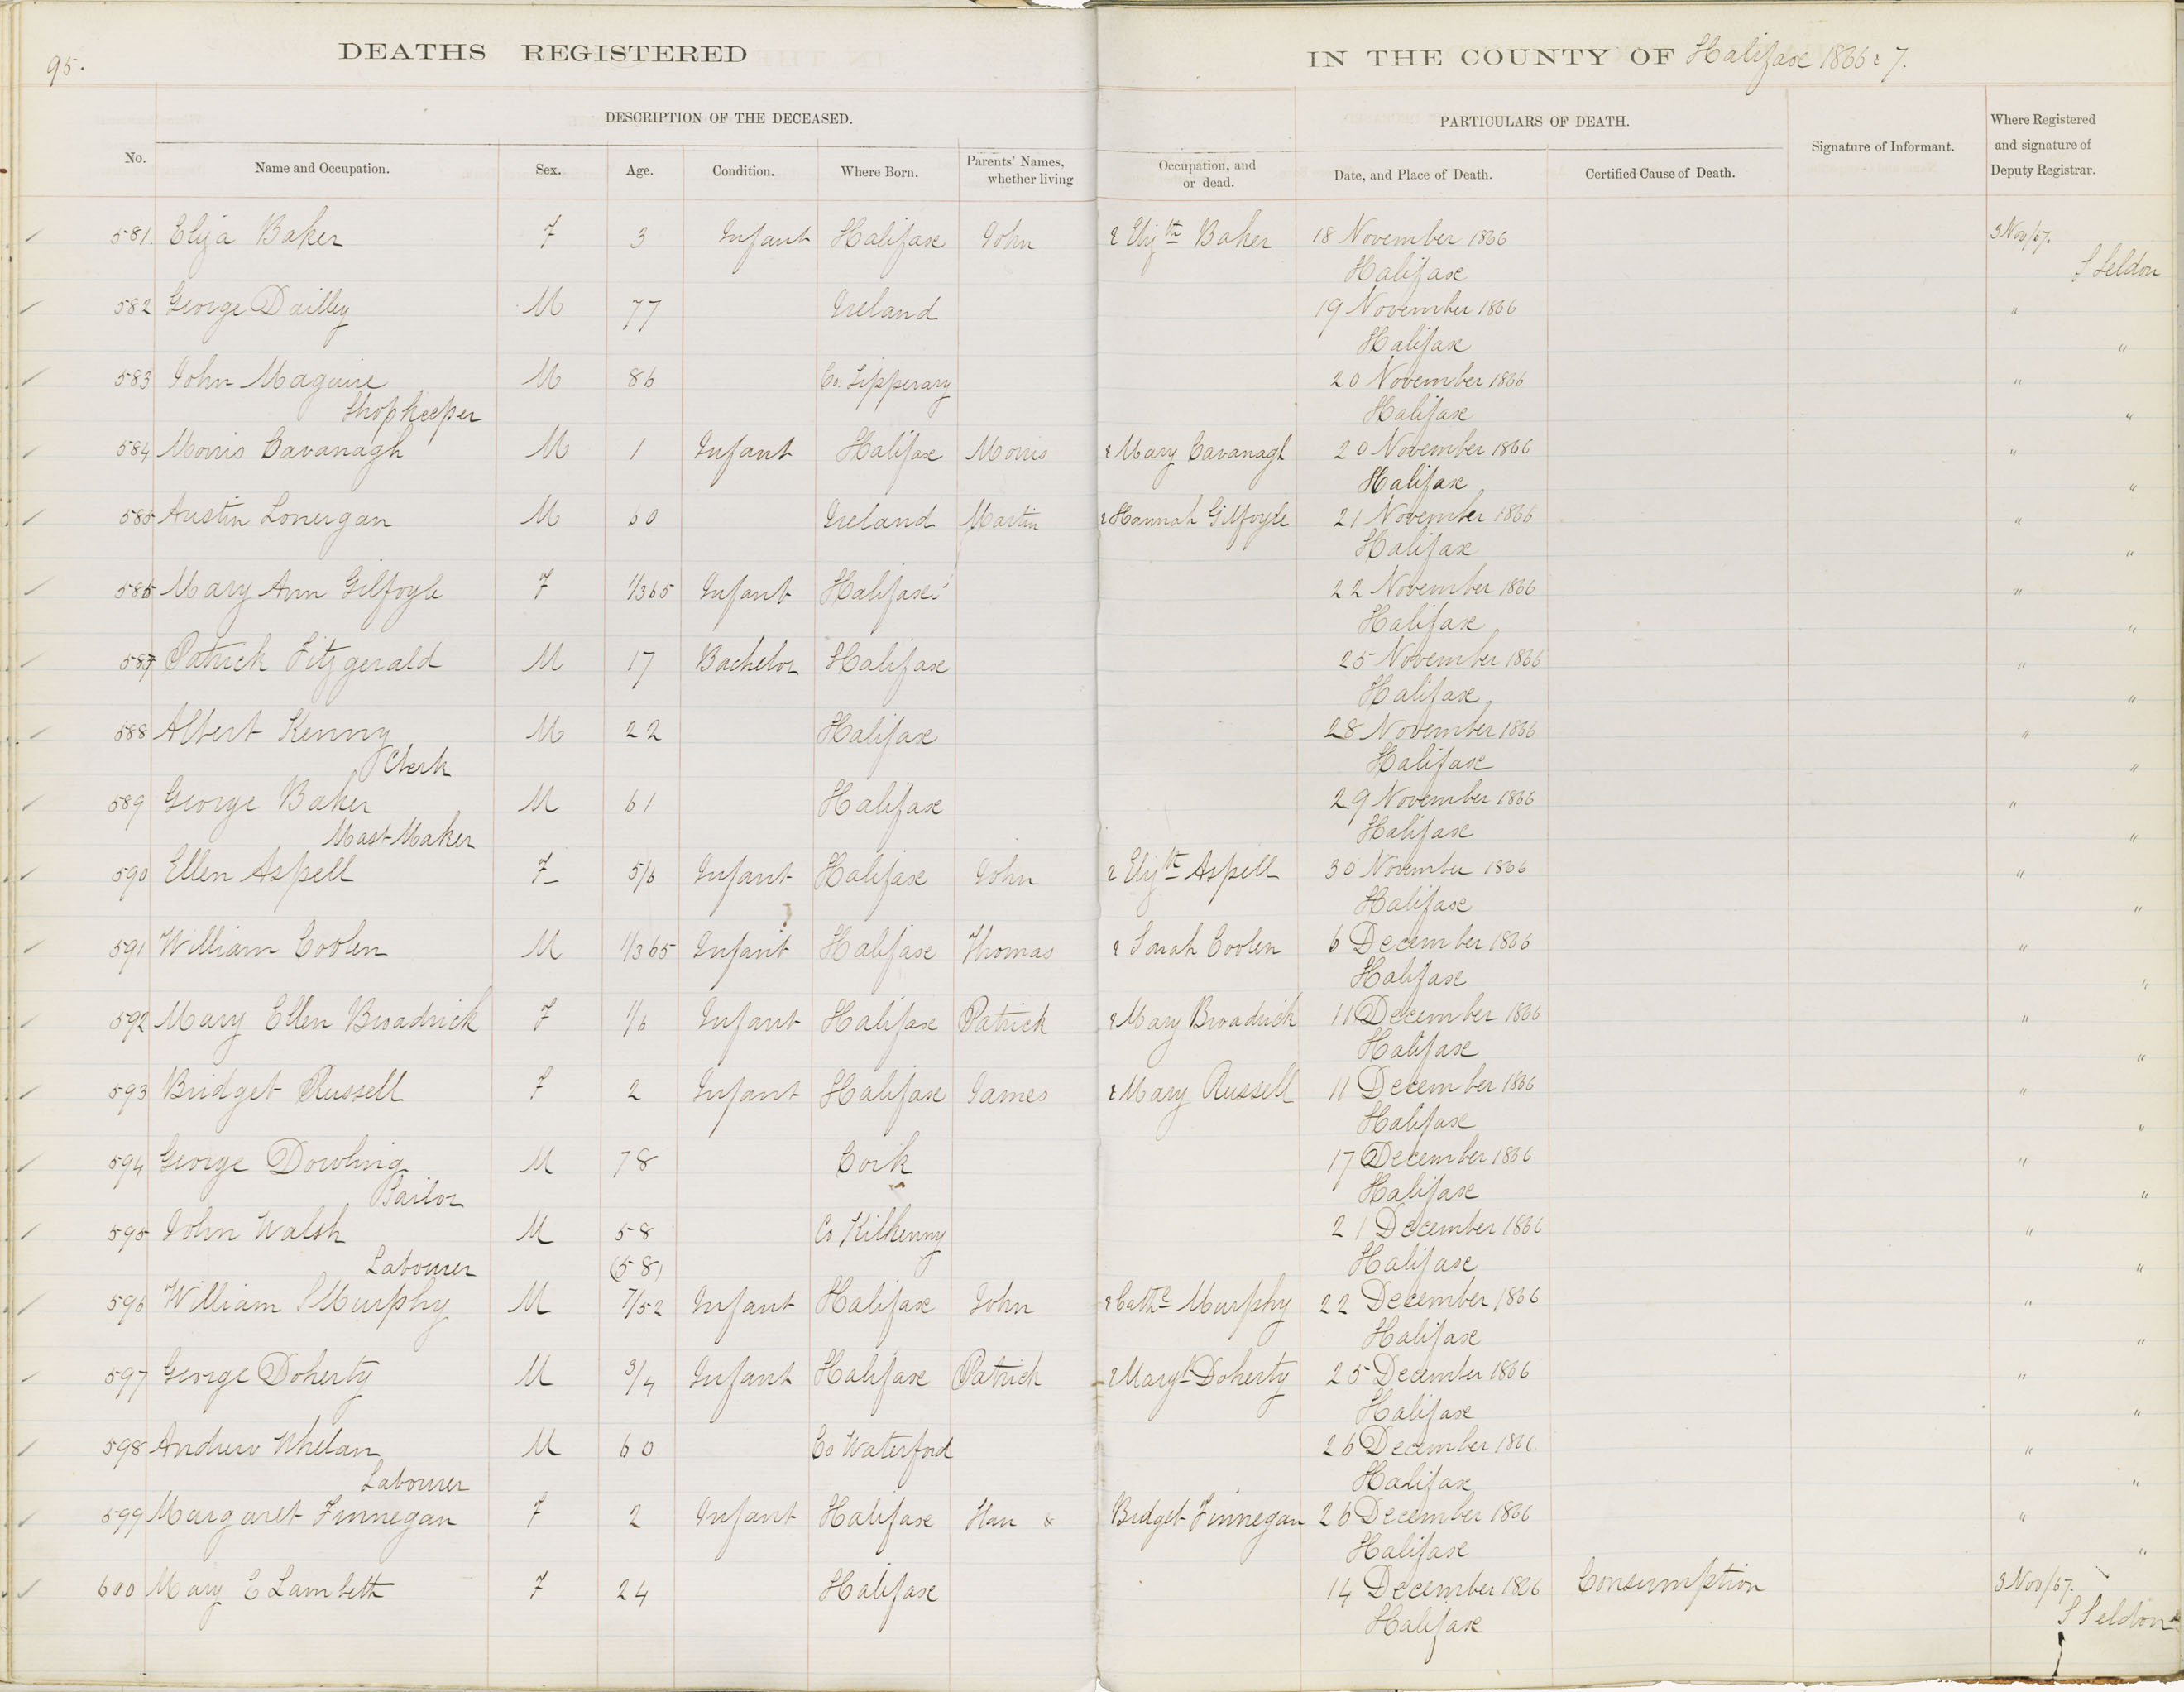 95.
DEATHS REGISTERED IN THE COUNTY OF Halifax 1866 & 7.
DESCRIPTION OF THE DECEASED. PARTICULARS OF DEATH.
No. Name and Occupation. Sex. Age. Condition. Where Born. Parents' Names, whether living Occupation, and or dead. Date, and Place of Death. Certified Cause of Death. Signature of Informant. Where Registered and signature of Deputy Registrar.
581. Eliza Baker F 3 Infant Halifax John & Elizth Baker 18 November 1866 3 Nov/67.
Halifax S Seldon
582 George Dailley M 77 Ireland 19 November 1866 "
Halifax "
583 John Maguire M 86 Co. Tipperary 20 November 1866 "
Shopkeeper Halifax "
584 Morris Cavanagh M 1 Infant Halifax Morris & Mary Cavanagh 20 November 1866 "
Halifax "
585 Austin Lonergan M 60 Ireland Martin & Hannah Gilfoyle 21 November 1866 "
Halifax "
586 Mary Ann Gilfoyle F 1/365 Infant Halifax 22 November 1866 "
Halifax "
587 Patrick Fitzgerald M 17 Bachelor Halifax 25 November 1866 "
Halifax "
588 Albert Kenny M 22 Halifax 28 November 1866 "
Clerk Halifax "
589 George Baker M 61 Halifax 29 November 1866 "
Mast Maker Halifax "
590 Ellen Aspell F 5/6 Infant Halifax John & Elizth Aspell 30 November 1866 "
Halifax "
591 William Coolen M 1/365 Infant Halifax Thomas & Sarah Coolen 6 December 1866 "
Halifax "
592 Mary Ellen Broadrick F 1/6 Infant Halifax Patrick & Mary Broadrick 11 December 1866 "
Halifax "
593 Bridget Russell F 2 Infant Halifax James & Mary Russell 11 December 1866 "
Halifax "
594 George Dowling M 78 Cork 17 December 1866 "
Tailor Halifax "
595 John Walsh M 58 Co Kilkenny 21 December 1866 "
Labourer (58) Halifax "
596 William S Murphy M 7/52 Infant Halifax John & Cathe Murphy 22 December 1866 "
Halifax "
597 George Doherty M 3/4 Infant Halifax Patrick & Margt Doherty 25 December 1866 "
Halifax "
598 Andrew Whelan M 60 Co Waterford 26 December 1866 "
Labourer Halifax "
599 Margaret Finnegan F 2 Infant Halifax & Bridget Finnegan 26 December 1866 "
Halifax "
600 Mary E Lambeth F 24 Halifax 14 December 1866 Consumption 3 Nov/67.
Halifax S Seldon